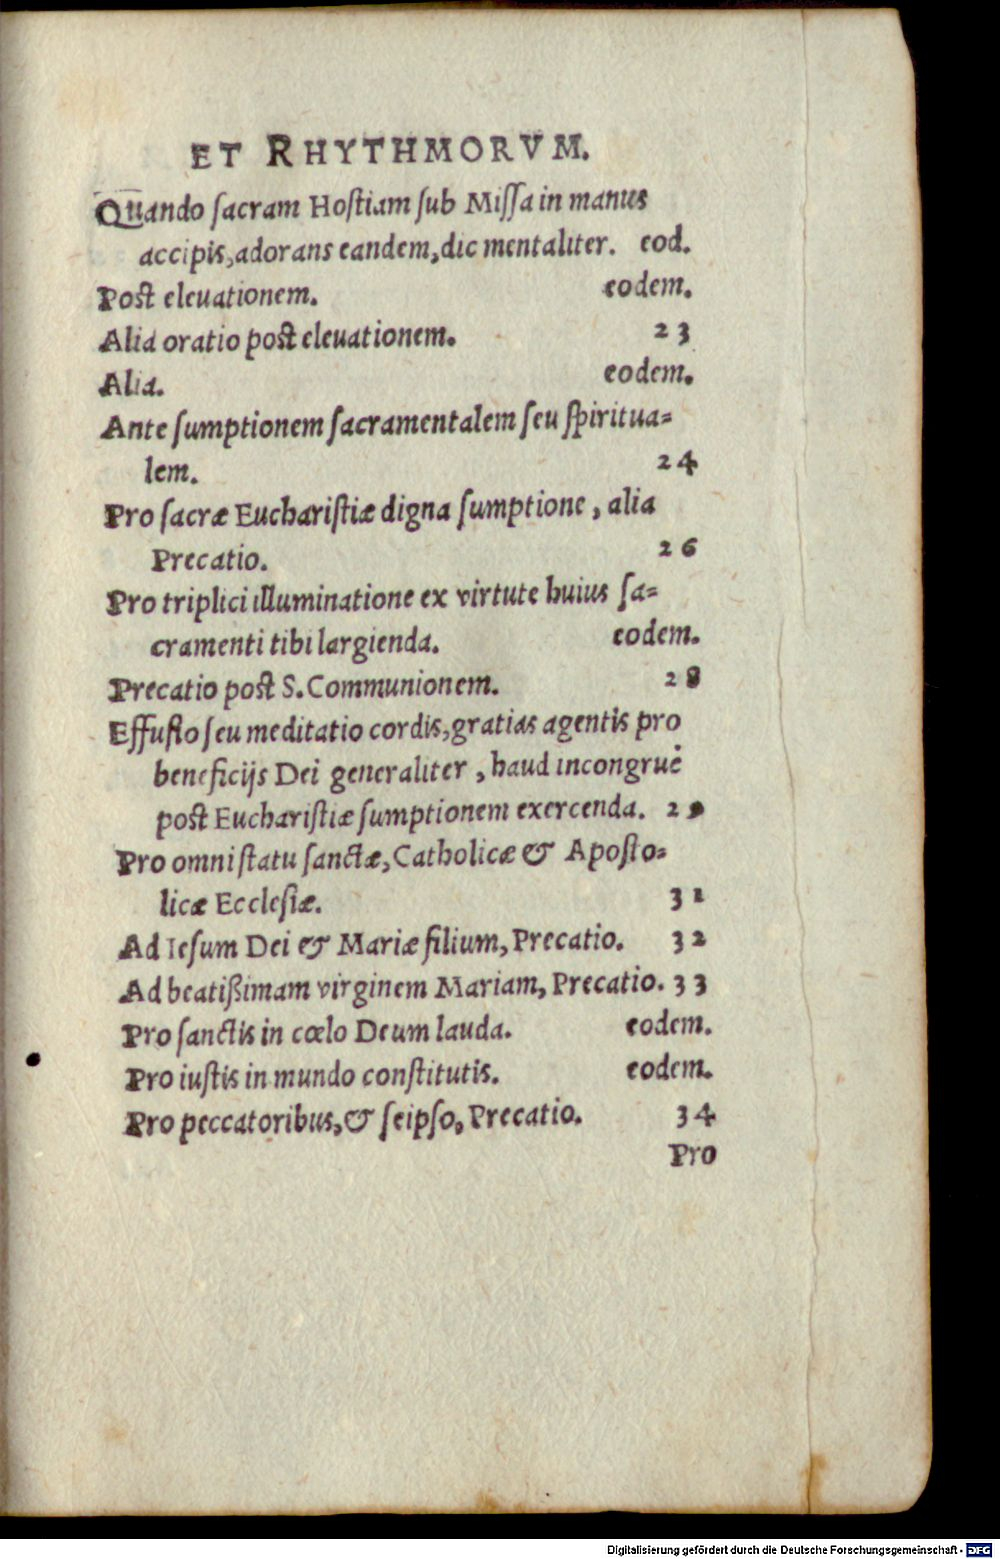 ET RHYTHMORVM.
Quando ſacram Hoſtiam ſub Miſſa in manus
accipis, adorans eandem, dic mentaliter. eod.
Post eleuationem. eodem.
Alia oratio post eleuationem. 23
Alia. eodem.
Ante ſumptionem ſacramentalem ſeu ſpiritua=
lem. 24
Pro ſacræ Euchariſtiæ digna ſumptione, alia
Precatio. 26
Pro triplici illuminatione ex virtute huius ſa=
cramenti tibi largienda. eodem.
Precatio post S. Communionem. 28
Effuſio ſeu meditatio cordis, gratias agentis pro
beneficijs Dei generaliter, haud incongruè
post Euchariſtiæ ſumptionem exercenda. 29
Pro omni ſtatu ſanctæ, Catholicæ & Apoſto=
licæ Eccleſiæ. 31
Ad Ieſum Dei & Mariæ filium, Precatio. 32
Ad beatißimam virginem Mariam, Precatio. 33
Pro ſanctis in cœlo Deum lauda. eodem.
Pro iuſtis in mundo conſtitutis. eodem.
Pro peccatoribus, & ſeipſo, Precatio. 34
Pro
Digitalisierung gefördert durch die Deutsche Forschungsgemeinschaft - DFG